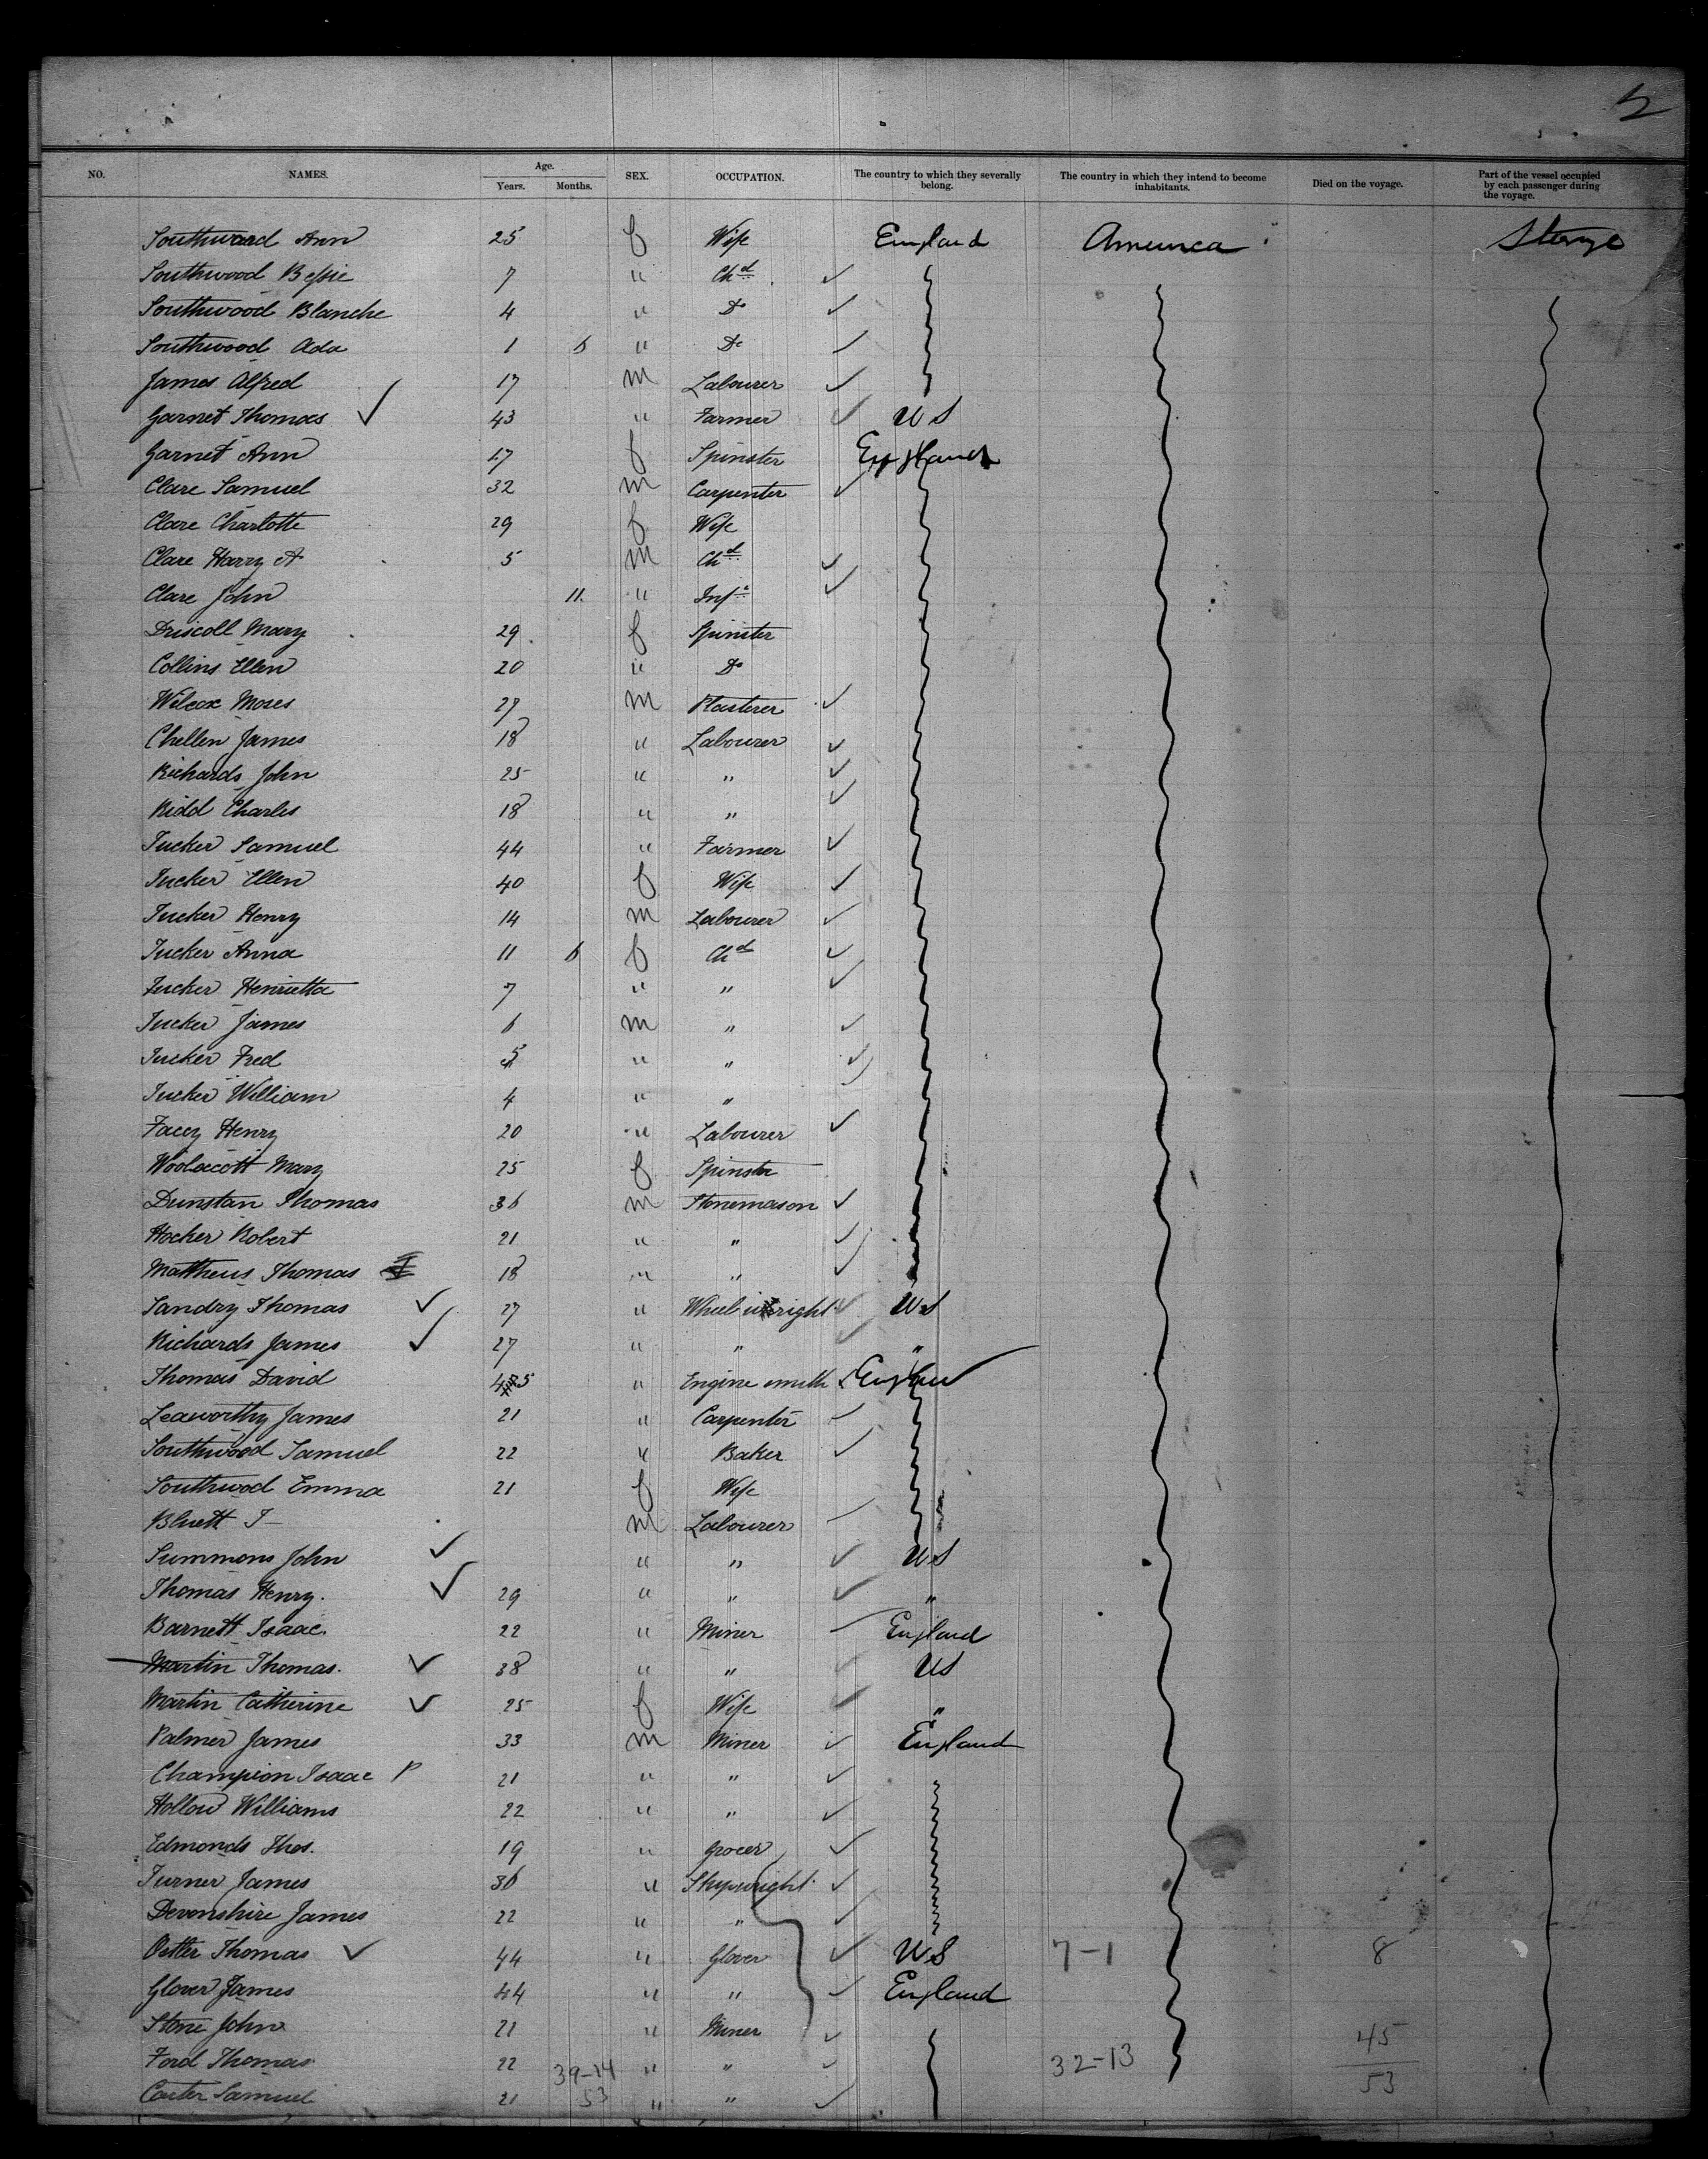 5
NO. NAMES. Age. Years. Months. SEX. OCCUPATION. The country to which they severally belong. The country in which they intend to become inhabitants. Died on the voyage. Part of the vessel occupied by each passenger during the voyage.
Southward Ann 25 f Wife England America Sterage
Southwood Bessie 7 " Chd
Southwood Blanche 4 " Do
Southwood Ada 1 6 " Do
James Alfred 17 m Labourer
Garnet Thomas 43 " Farmer US
Garnet Ann 17 f Spinster England
Clare Samuel 32 m Carpenter
Clare Charlotte 29 f Wife
Clare Harry A 5 m Chd
Clare John 11 " Inft
Driscoll Mary 29 f Spinster
Collins Ellen 20 " Do
Wilcox Moses 27 m Plasterer
Chellen James 18 " Labourer
Richards John 25 " "
Kidd Charles 18 " "
Tucker Samuel 44 " Farmer
Tucker Ellen 40 f Wife
Tucker Henry 14 m Labourer
Tucker Anna 11 6 f Chd
Tucker Henrietta 7 " "
Tucker James 6 m "
Tucker Fred 5 " "
Tucker William 4 " "
Facey Henry 20 " Labourer
Woolacott Mary 25 f Spinster
Dunstan Thomas 36 m Stonemason
Hocker Robert 21 " "
Matthews Thomas 18 " "
Sandry Thomas 27 " Wheelwright US
Richards James 27 " " "
Thomas David 45 " Engine smith England
Leaworthy James 21 " Carpenter
Southwood Samuel 22 " Baker
Southwood Emma 21 f Wife
Bluett J m Labourer
Summons John " " US
Thomas Henry. 29 " " "
Barnett Isaac. 22 " Miner England
Martin Thomas. 38 " " US
Martin Catherine 25 f Wife "
Palmer James 33 m Miner England
Champion Isaac P 21 " "
Hollow Williams 22 " "
Edmonds Thos. 19 " Grocer
Turner James 36 " Shipwright
Devonshire James 22 " "
Thomas 44 " Glover US 7-1 8
Glover James 44 " " England
Stone John 21 " Miner
Ford Thomas 22 39-14 " " 32-13 45
Carter Samuel 21 53 " " 53